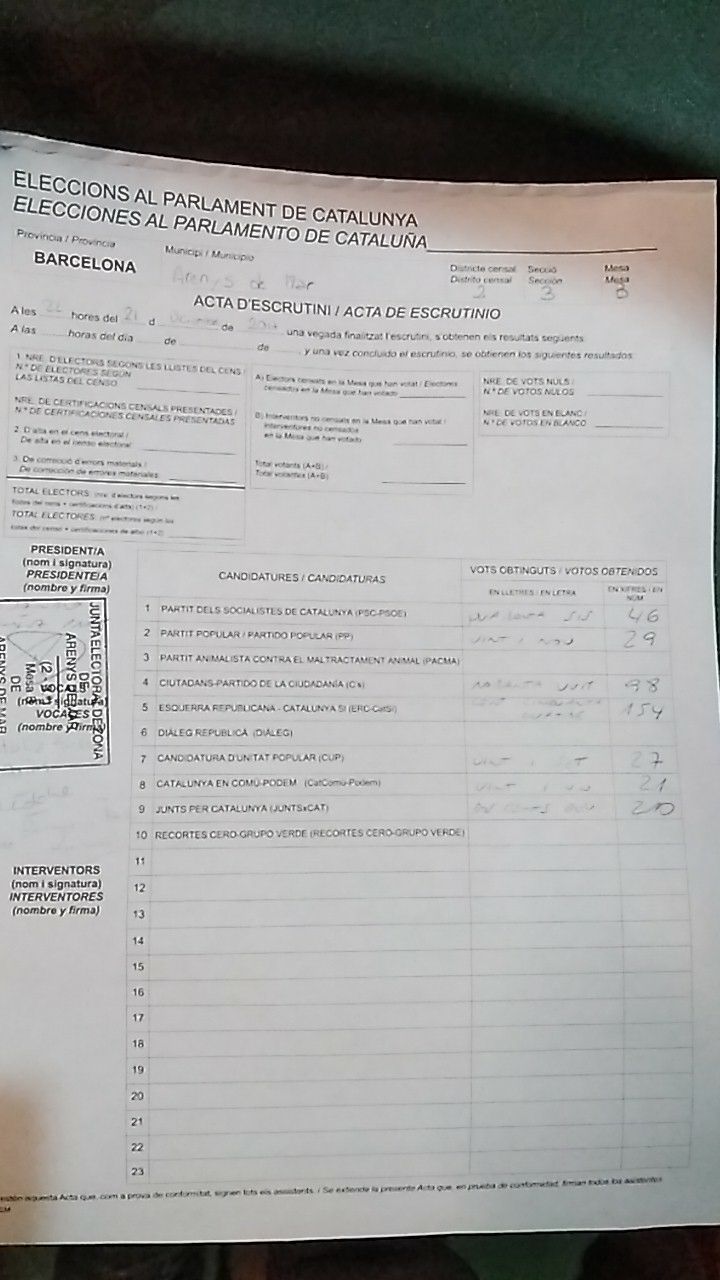 ELECCIONS AL PARLAMENT DE CATALUNYA
ELECCIONES AL PARLAMENTO DE CATALUÑA
Provincia / Provincia
Municipi / Municipio
Districte censal Secció Mesa
Distrito censal Sección Mesa
BARCELONA
Arenys de Mar
2 3 B
ACTA D'ESCRUTINI / ACTA DE ESCRUTINIO
A les 21 hores del 21 d de 2017 una vegada finalitzat l'escrutini, s'obtenen els resultats següents:
A las horas del día de de y una vez concluido el escrutinio, se obtienen los siguientes resultados:
1. NRE. D'ELECTORS SEGONS LES LLISTES DEL CENS /
N.º DE ELECTORES SEGÚN
LAS LISTAS DEL CENSO
NRE. DE CERTIFICACIONS CENSALS PRESENTADES /
N.º DE CERTIFICACIONES CENSALES PRESENTADAS
2. D'alta en el cens electoral /
De alta en el censo electoral
3. De correcció d'errors materials /
De corrección de errores materiales
TOTAL ELECTORS: (nre. d'electors segons les
llistes del cens + certificacions d'alta) (1+2) /
TOTAL ELECTORES: (nº electores según las
listas del censo + certificaciones de alta) (1+2)
A) Electors censats en la Mesa que han votat / Electores
censados en la Mesa que han votado
B) Interventors no censats en la Mesa que han votat /
Interventores no censados
en la Mesa que han votado
Total votants (A+B) /
Total votantes (A+B)
NRE. DE VOTS NULS /
N.º DE VOTOS NULOS
NRE. DE VOTS EN BLANC /
N.º DE VOTOS EN BLANCO
PRESIDENT/A
(nom i signatura)
PRESIDENTE/A
(nombre y firma)
JUNTA ELECTORAL DE ZONA
DE
ARENYS DE MAR
Mesa
DE
ARENYS DE MAR
VOCALS
(nom i signatura)
VOCALES
(nombre y firma)
INTERVENTORS
(nom i signatura)
INTERVENTORES
(nombre y firma)
CANDIDATURES / CANDIDATURAS
VOTS OBTINGUTS / VOTOS OBTENIDOS
EN LLETRES / EN LETRA
EN XIFRES / EN NÚM.
1 PARTIT DELS SOCIALISTES DE CATALUNYA (PSC-PSOE) quaranta sis 46
2 PARTIT POPULAR / PARTIDO POPULAR (PP) vint i nou 29
3 PARTIT ANIMALISTA CONTRA EL MALTRACTAMENT ANIMAL (PACMA)
4 CIUTADANS-PARTIDO DE LA CIUDADANÍA (C's) noranta vuit 98
5 ESQUERRA REPUBLICANA - CATALUNYA SÍ (ERC-CatSí) cent cinquanta quatre 154
6 DIÀLEG REPUBLICÀ (DIÀLEG)
7 CANDIDATURA D'UNITAT POPULAR (CUP) vint i set 27
8 CATALUNYA EN COMÚ-PODEM (CatComú-Podem) vint i un 21
9 JUNTS PER CATALUNYA (JUNTSxCAT) dos cents deu 210
10 RECORTES CERO-GRUPO VERDE (RECORTES CERO-GRUPO VERDE)
11
12
13
14
15
16
17
18
19
20
21
22
23
aquesta Acta que, com a prova de conformitat, signen tots els assistents. / Se extiende la presente Acta que, en prueba de conformidad, firman todos los asistentes